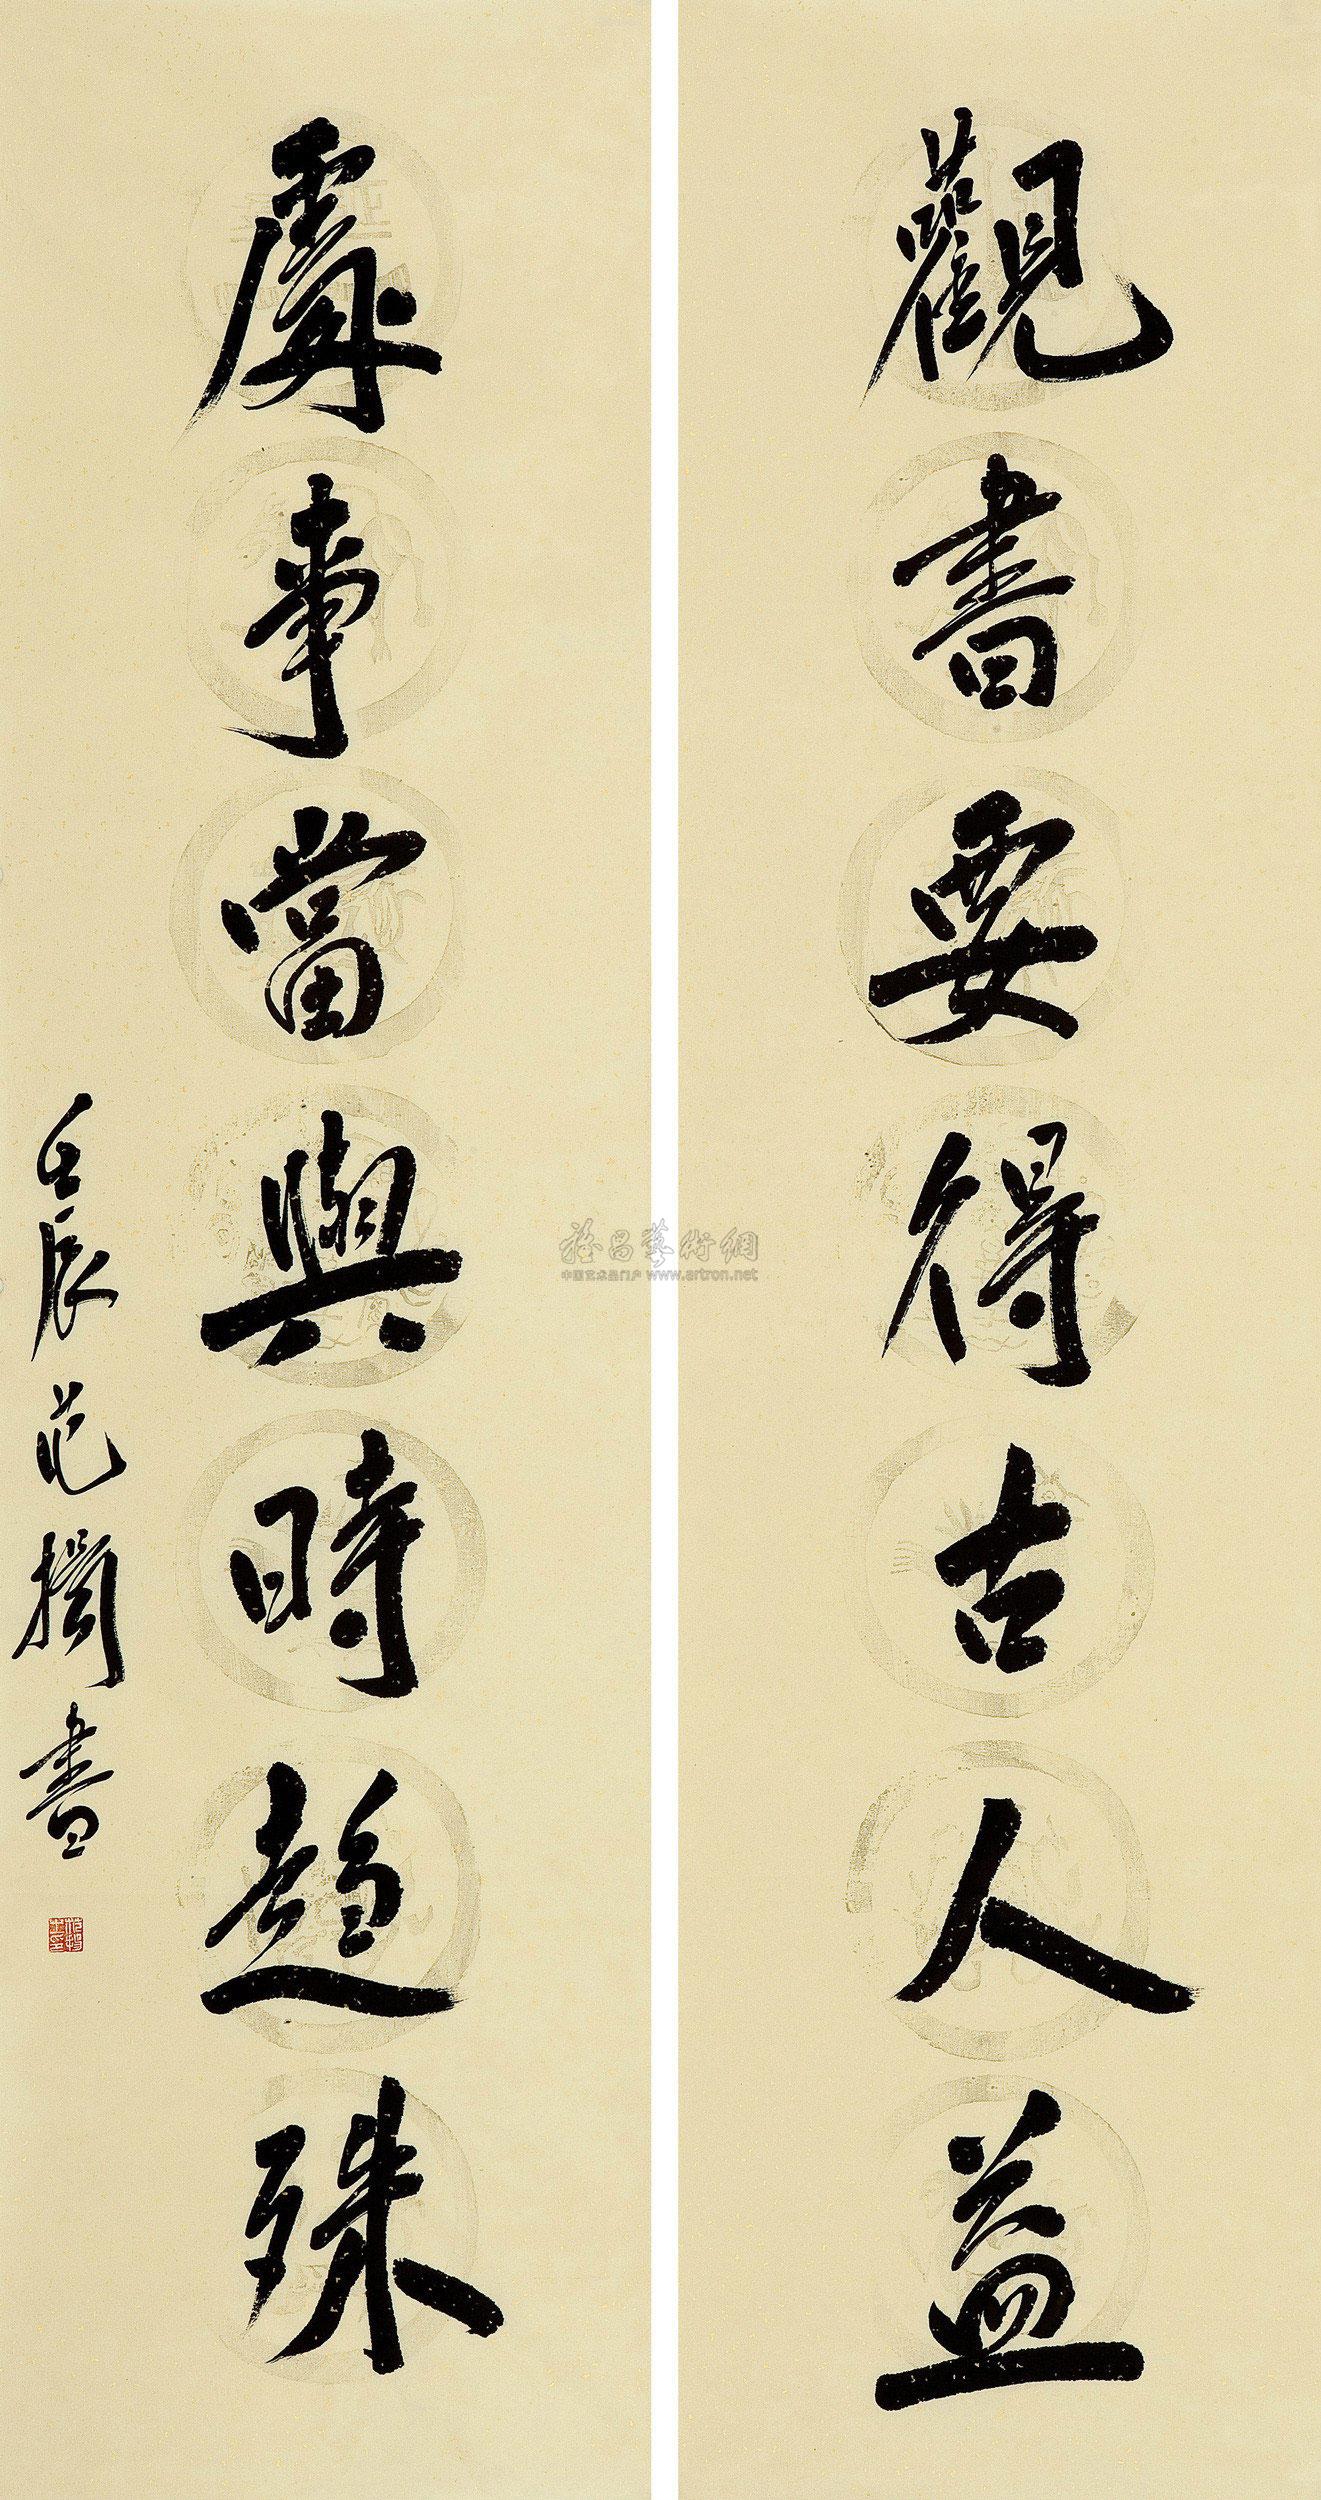 觀書要得古人益
處事當與時趨殊
壬辰范擱書
雅昌藝術網
中国艺术品门户 www.artron.net